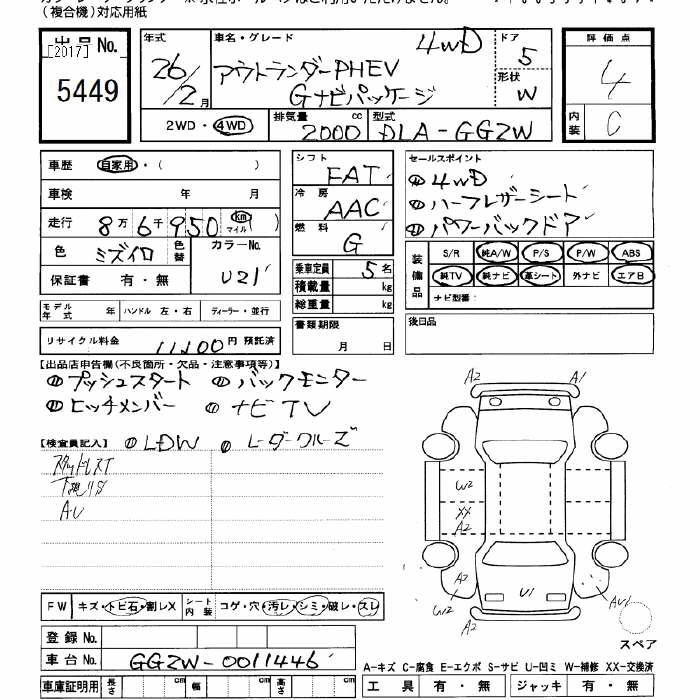 （複合機）対応用紙
出品No.
[2017]
5449
年式 26/2月
車名・グレード 4WD
アウトランダーPHEV
Gナビパッケージ
ドア 5
形状 W
2WD・4WD
排気量 2000 cc
型式 DLA-GG2W
評価点 4
内装 C
車歴 自家用・( )
車検 年 月
走行 8万6千950 km マイル ( )
色 ミズイロ 色替
カラーNo. U21
保証書 有・無
モデル年式 年 ハンドル 左・右 ディーラー・並行
リサイクル料金 11,100円 預託済
シフト FAT
冷房 AAC
燃料 G
乗車定員 5名
積載量 kg
総重量 kg
書類期限
月 日
セールスポイント
① 4WD
② ハーフレザーシート
③ パワーバックドア
装備品
S/R 純A/W P/S P/W ABS
純TV 純ナビ 革シート 外ナビ エアB
ナビ型番:
後日品
【出品店申告欄(不良箇所・欠品・注意事項等)】
プッシュスタート バックモニター
ヒッチメンバー ナビTV
【検査員記入】 LDW レーダークルーズ
FW キズ・トビ石・割レX
シート内装 コゲ・穴・汚レ・シミ・破レ・スレ
登録No.
車台No. GG2W-0011446
車庫証明用 長さ cm 幅 cm 高さ cm
A2 A1
W2
XX
A2
A2
W2
U1
AU1
A2
スペア
A-キズ C-腐食 E-エクボ S-サビ U-凹ミ W-補修 XX-交換済
工具 有・無 ジャッキ 有・無